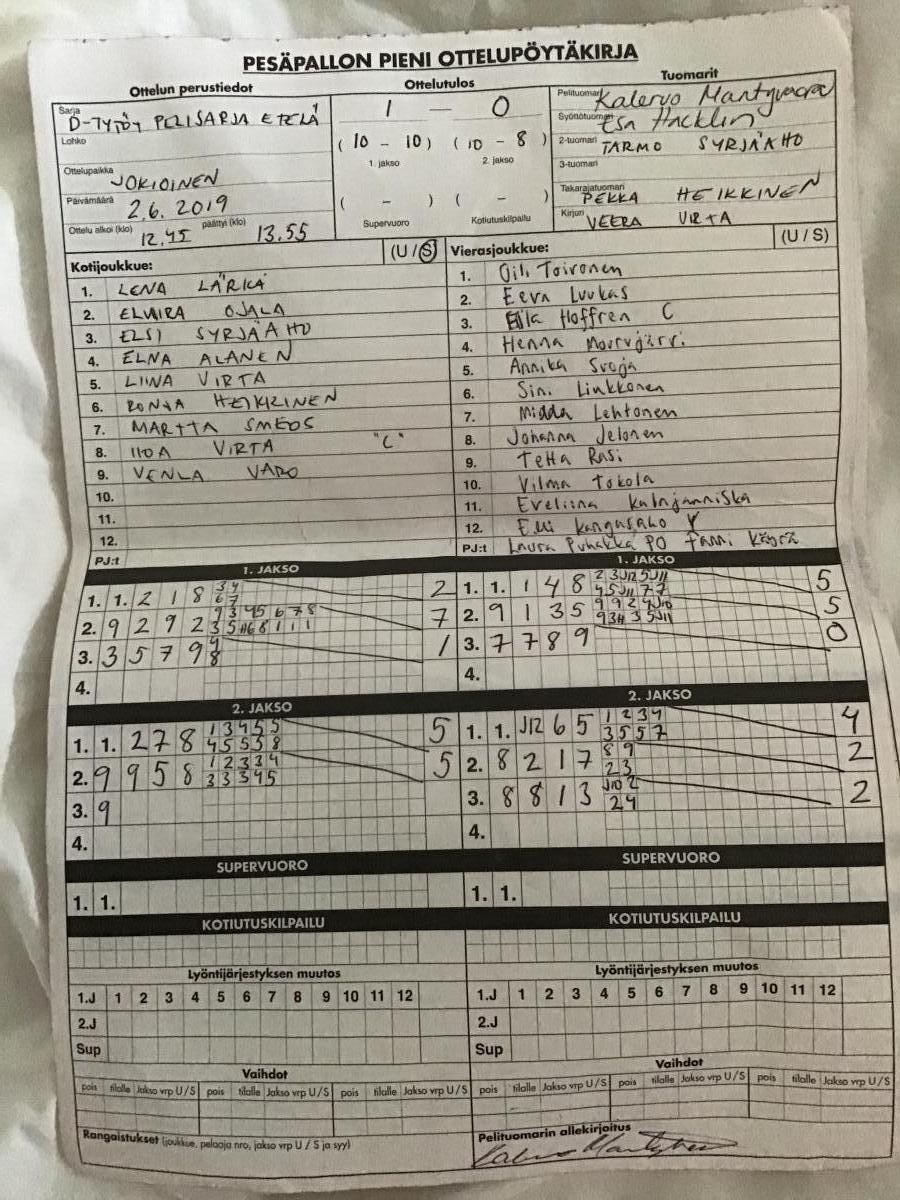 PESÄPALLON PIENI OTTELUPÖYTÄKIRJA
Ottelun perustiedot
Ottelutulos
Tuomarit
Sarja D-TYTÖT PELISARJA ETELÄ
Lohko
Ottelupaikka JOKIOINEN
Päivämäärä 2.6.2019
Ottelu alkoi (klo) 12.45 päättyi (klo) 13.55
1 — 0
(10 - 10) (10 - 8)
1. jakso 2. jakso
( - ) ( - )
Supervuoro Kotiutuskilpailu
Pelituomari Kalervo
Syöttötuomari Esa Hacklin
2-tuomari TARMO SYRJÄAHO
3-tuomari
Takarajatuomari PEKKA HEIKKINEN
Kirjuri VEERA VIRTA
Kotijoukkue: (U/S)
1. LENA LÄRKÄ
2. ELVIIRA OJALA
3. ELSI SYRJÄAHO
4. ELNA ALANEN
5. LIINA VIRTA
6. RONJA HEIKKINEN
7. MARTTA SMEDS
8. IIDA VIRTA "C"
9. VENLA VARO
10.
11.
12.
PJ:t
Vierasjoukkue: (U/S)
1. Oili Toivonen
2. Eeva Luukas
3. Hoffren C
4. Henna
5. Annika Suoja
6. Sini Linkkonen
7. Lehtonen
8. Johanna Jelonen
9. Rasi
10. Vilma Tokola
11. Eveliina
12. Elli Kangasaho
PJ:t Laura Puhakka PO Fanni Käyrä
1. JAKSO
1. 1. 2 1 8 3 4 6 7 2
2. 9 2 9 2 7
3. 3 5 7 9 9 8 1
4.
1. JAKSO
1. 1. 1 4 8 5
2. 9 1 3 5 5
3. 7 7 8 9 0
4.
2. JAKSO
1. 1. 2 7 8 1 3 4 5 5 5
4 5 5 5 8
2. 9 9 5 8 1 2 3 3 4 5
3 3 3 4 5
3. 9
4.
2. JAKSO
1. 1. J12 6 5 1 2 3 4 4
3 5 5 7
2. 8 2 1 7 8 9 2
2 3
3. 8 8 1 3 J10 2 2
2 4
4.
SUPERVUORO
1. 1.
SUPERVUORO
1. 1.
KOTIUTUSKILPAILU
KOTIUTUSKILPAILU
Lyöntijärjestyksen muutos
1.J 1 2 3 4 5 6 7 8 9 10 11 12
2.J
Sup
Lyöntijärjestyksen muutos
1.J 1 2 3 4 5 6 7 8 9 10 11 12
2.J
Sup
Vaihdot
pois tilalle Jakso vrp U/S pois tilalle Jakso vrp U/S pois tilalle Jakso vrp U/S
Vaihdot
pois tilalle Jakso vrp U/S pois tilalle Jakso vrp U/S pois tilalle Jakso vrp U/S
Rangaistukset (joukkue, pelaaja nro, jakso vrp U / S ja syy)
Pelituomarin allekirjoitus